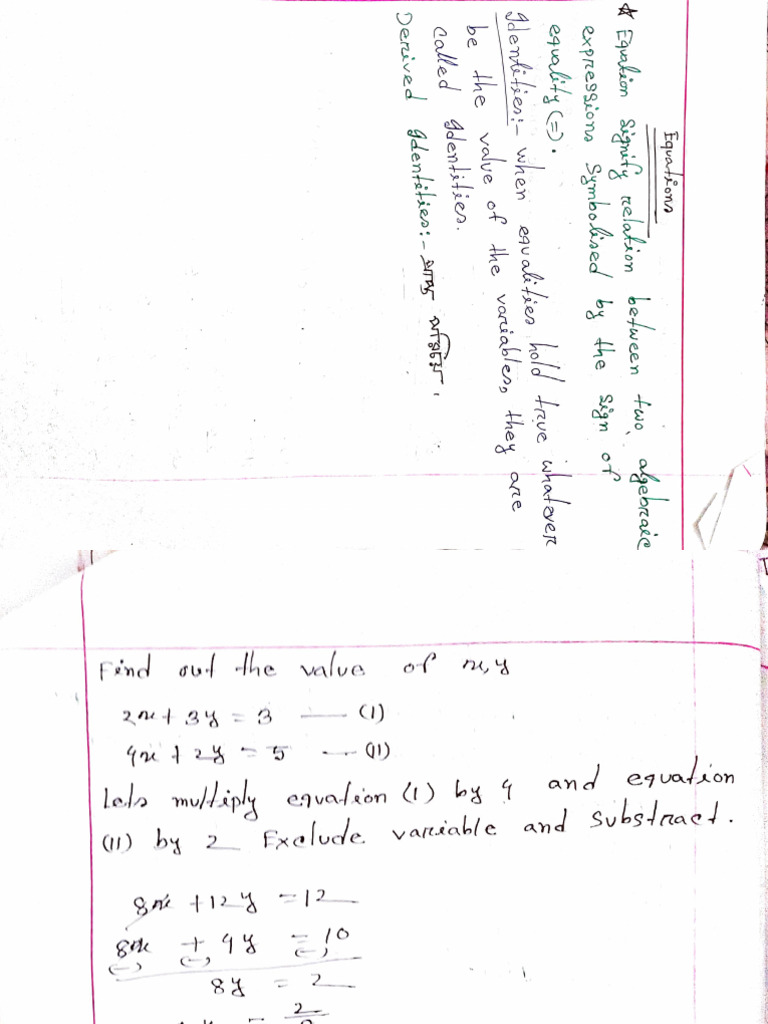 Equations
* Equation signify relation between two algebraic
expressions symbolised by the sign of
equality (=).
Identities:- when equalities hold true whatever
be the value of the variables, they are
called Identities.
Derived Identities:-
Find out the value of x, y
2x + 3y = 3 — (I)
4x + 2y = 5 — (II)
Lets multiply equation (I) by 4 and equation
(II) by 2 Exclude variable and substract.
8x + 12y = 12
8x + 4y = 10
(-) (-) (-)
8y = 2